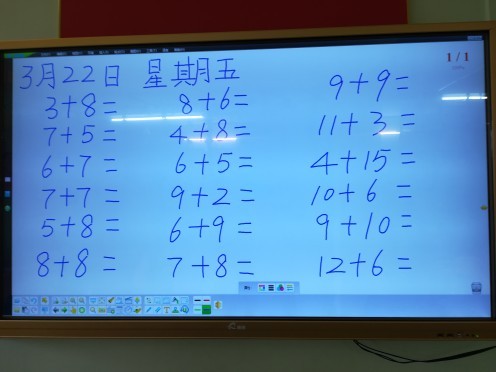 1/1
3月22日 星期五
3+8=
7+5=
6+7=
7+7=
5+8=
8+8=
8+6=
4+8=
6+5=
9+2=
6+9=
7+8=
9+9=
11+3=
4+15=
10+6=
9+10=
12+6=